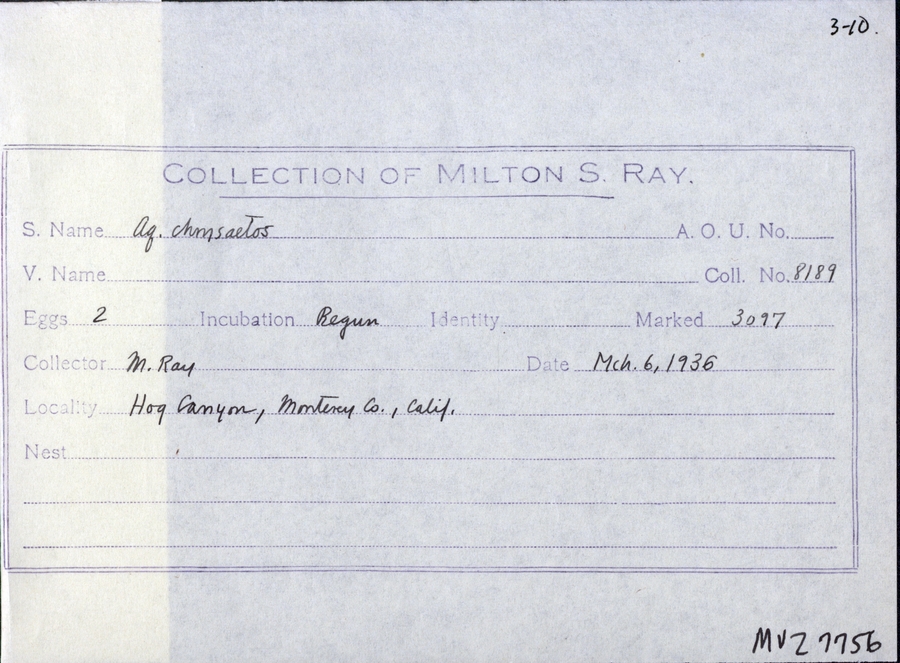 3-10.
COLLECTION OF MILTON S. RAY.
S. Name Aq. chrysaetos A. O. U. No.
V. Name Coll. No. 8189
Eggs 2 Incubation Begun Identity Marked 3097
Collector M. Ray Date Mch. 6, 1936
Locality Hog Canyon, Monterey Co., Calif.
Nest
MVZ 7756